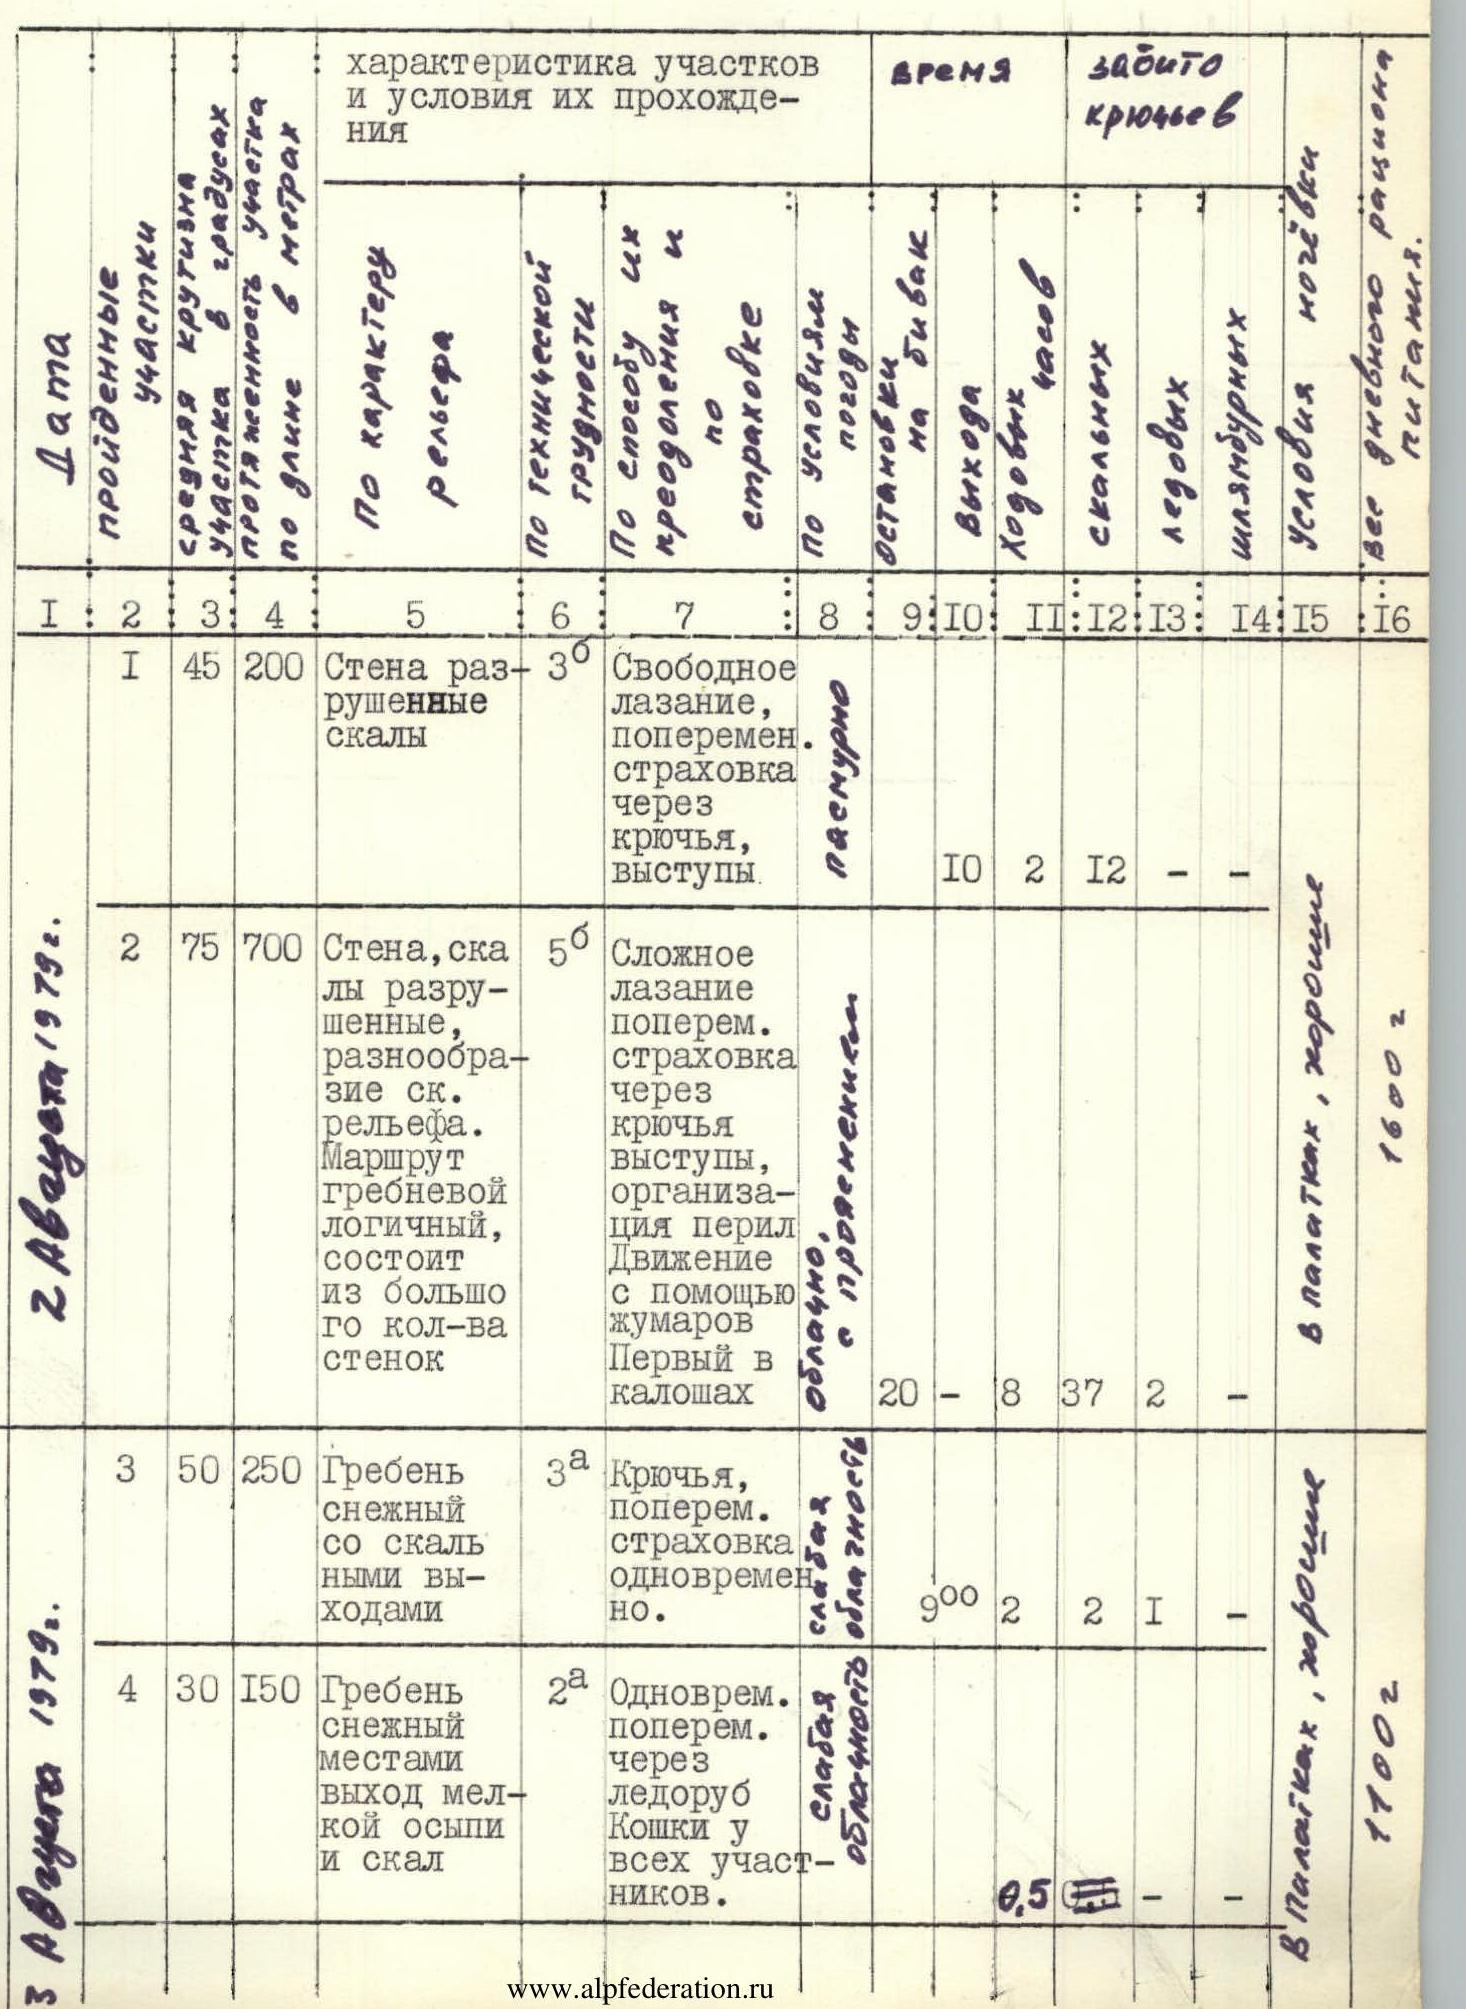 характеристика участков
и условия их прохожде-
ния
время
забито
крючьев
Дата
пройденные
участки
средняя крутизна
участка в градусах
протяженность участка
по длине в метрах
По характеру
рельефа
по технической
трудности
По способу их
преодоления и
по
страховке
по условиям
погоды
остановки
на бивак
выхода
ходовых
часов
скальных
ледовых
шлямбурных
условия ночёвки
вес дневного рациона
питания.
I 2 3 4 5 6 7 8 9 IO II I2 I3 I4 I5 I6
2 Августа 1979г.
I 45 200
Стена раз-
рушенные
скалы
3б
Свободное
лазание,
поперемен.
страховка
через
крючья,
выступы
пасмурно
IO 2 I2 - -
2 75 700
Стена, ска
лы разру-
шенные,
разнообра-
зие ск.
рельефа.
Маршрут
гребневой
логичный,
состоит
из большо
го кол-ва
стенок
5б
Сложное
лазание
поперем.
страховка
через
крючья
выступы,
организа-
ция перил
Движение
с помощью
жумаров
Первый в
калошах
облачно,
с прояснением
20 - 8 37 2 -
в палатках, хорошие
1600 г
3 Августа 1979г.
3 50 250
Гребень
снежный
со скаль
ными вы-
ходами
3а
Крючья,
поперем.
страховка
одновремен
но.
слабая
облачность
9оо 2 2 I -
4 30 I50
Гребень
снежный
местами
выход мел-
кой осыпи
и скал
2а
Одноврем.
поперем.
через
ледоруб
Кошки у
всех участ-
ников.
слабая
облачность
0,5 - -
в палатках, хорошие
1100 г
www.alpfederation.ru